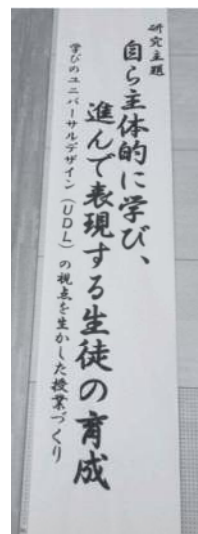 研究主題
自ら主体的に学び、
進んで表現する生徒の育成
学びのユニバーサルデザイン（UDL）の視点を生かした授業づくり